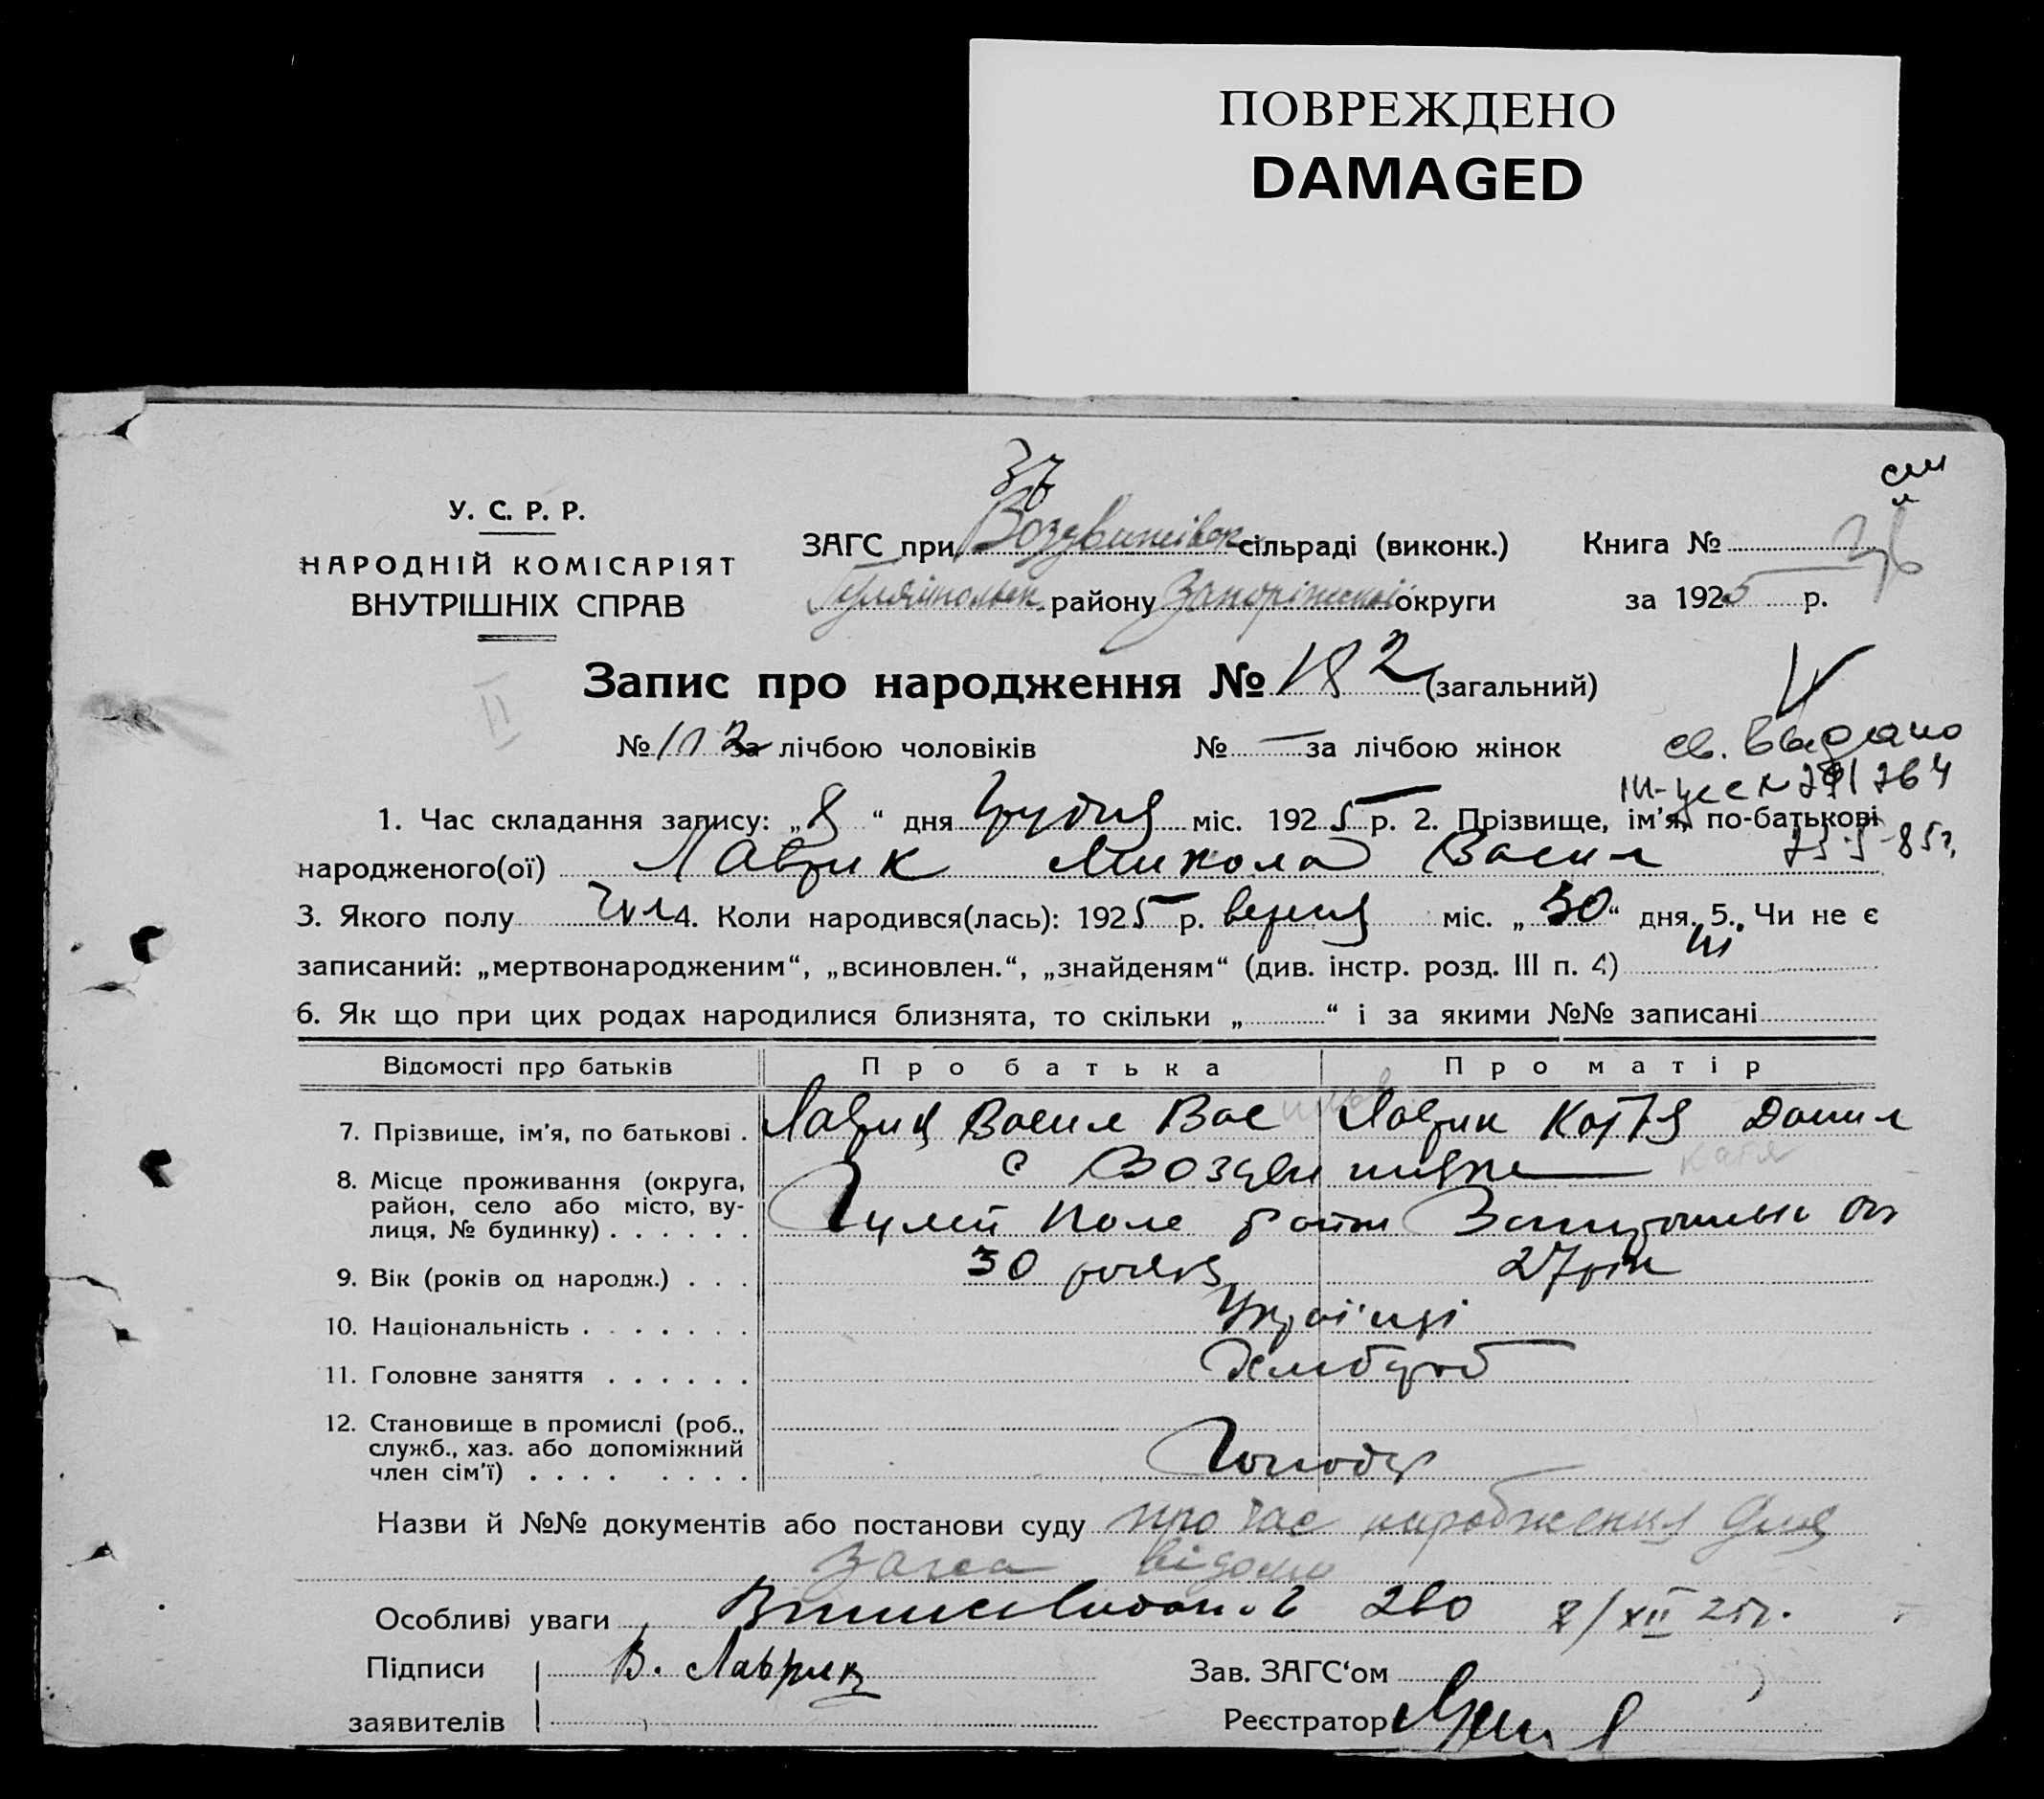 ПОВРЕЖДЕНО
DAMAGED
У. С. Р. Р.
НАРОДНІЙ КОМІСАРІЯТ
ВНУТРІШНІХ СПРАВ
ЗАГС при Воздвижівск сільраді (виконк.)
Гуляйпольск. району Запоріжської округи
Книга №
за 1925 р.
Запис про народження № 182 (загальний)
№ 112 за лічбою чоловіків № — за лічбою жінок
св. выдано
1. Час складання запису: „8“ дня Грудня міс. 1925 р. 2. Прізвище, ім'я, по-батькові
народженого(ої) Лаврик Микола Васил
3. Якого полу Чол 4. Коли народився(лась): 1925 р. вересня міс. „30“ дня. 5. Чи не є
записаний: „мертвонародженим“, „всиновлен.“, „знайденям“ (див. інстр. розд. III п. 4) ні
6. Як що при цих родах народилися близнята, то скільки „ “ і за якими №№ записані
Відомості про батьків Про батька Про матір
7. Прізвище, ім'я, по батькові . Лаврик Васил Вас Лаврик Катя Данил
Катя
8. Місце проживання (округа, район, село або місто, вулиця, № будинку) . . . . . . с Воздвижівка
Гуляй Поле район
9. Вік (років од народж.) . . . 30 років 27 рік
10. Національність . . . . . . . Україці
11. Головне заняття . . . . . . Хлібороб
12. Становище в промислі (роб., служб., хаз. або допоміжний член сім'ї) . . . . . . . .
Назви й №№ документів або постанови суду про час народження для
загса відомо
Особливі уваги 280 8/XII 25 г.
Підписи В. Лаврик Зав. ЗАГС‘ом
заявителів Реєстратор